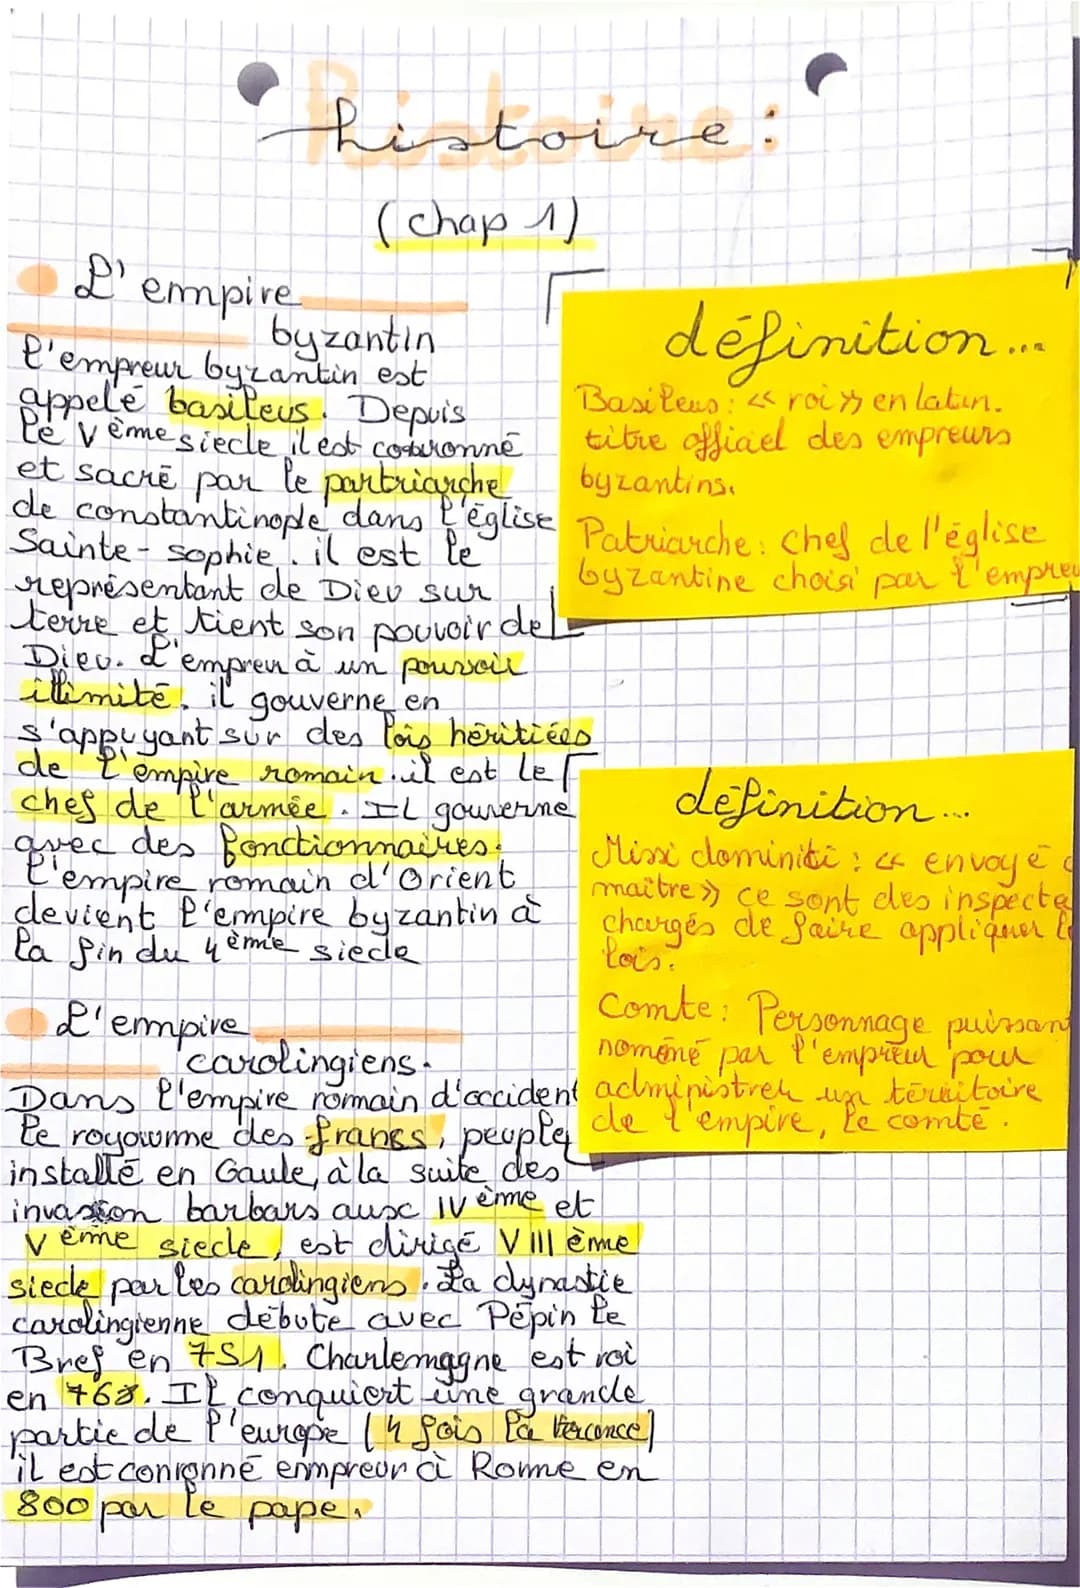 histoire:
(chap 1)
L'empire
byzantin
l'empreur byzantin est
appelé basileus. Depuis
le Vème siecle il est couronné
et sacré par le partriarche
de constantinople dans l'église
Sainte-sophie. il est le
représentant de Dieu sur
terre et tient son pouvoir de
Dieu. L'empreu à un pouvoir
illimité. il gouverne en
s'appuyant sur des lois héritiées
de l'empire romain. il est le
chef de l'armée. IL gouverne
avec des fonctionnaires.
L'empire romain d'Orient
devient l'empire byzantin à
la fin du 4ème siecle
définition...
Basileus: « roi » en latin.
titre officiel des empreurs
byzantins.
Patriarche: chef de l'église
byzantine choisi par l'empreu
L'empire
carolingiens.
Dans l'empire romain d'occident
le royaume des francs, peuple
installé en Gaule, à la suite des
invasion barbars aux IVème et
Vème siecle, est dirigé VIIIème
siecle par les carolingiens. La dynastie
carolingienne débute avec Pépin le
Bref en 751. Charlemagne est roi
en 768. IL conquiert une grande
partie de l'europe (4 fois la
il est conronné empreur à Rome en
800 par le pape.
définition...
Missi dominiti: « envoyé d
maître » ce sont des inspecte
chargés de faire appliquer le
lois.
Comte: Personnage puissant
nomené par l'empreur pour
administrer un térritoire
de l'empire, le comté.